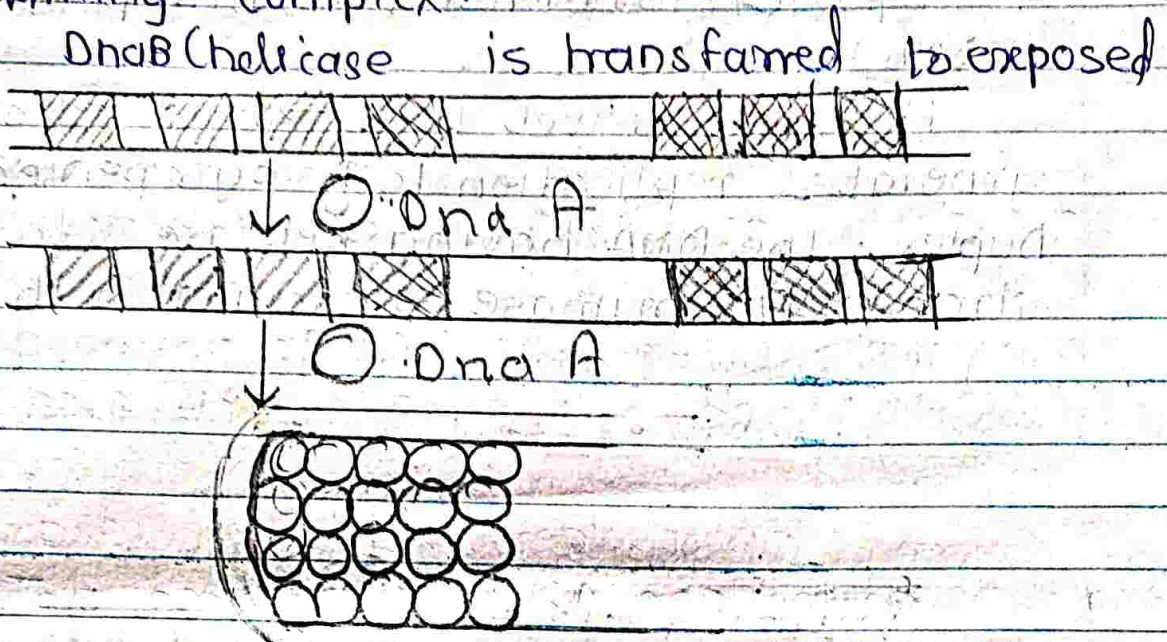 complex
DnaB (helicase is transfarred to exposed
Dna A
Dna A